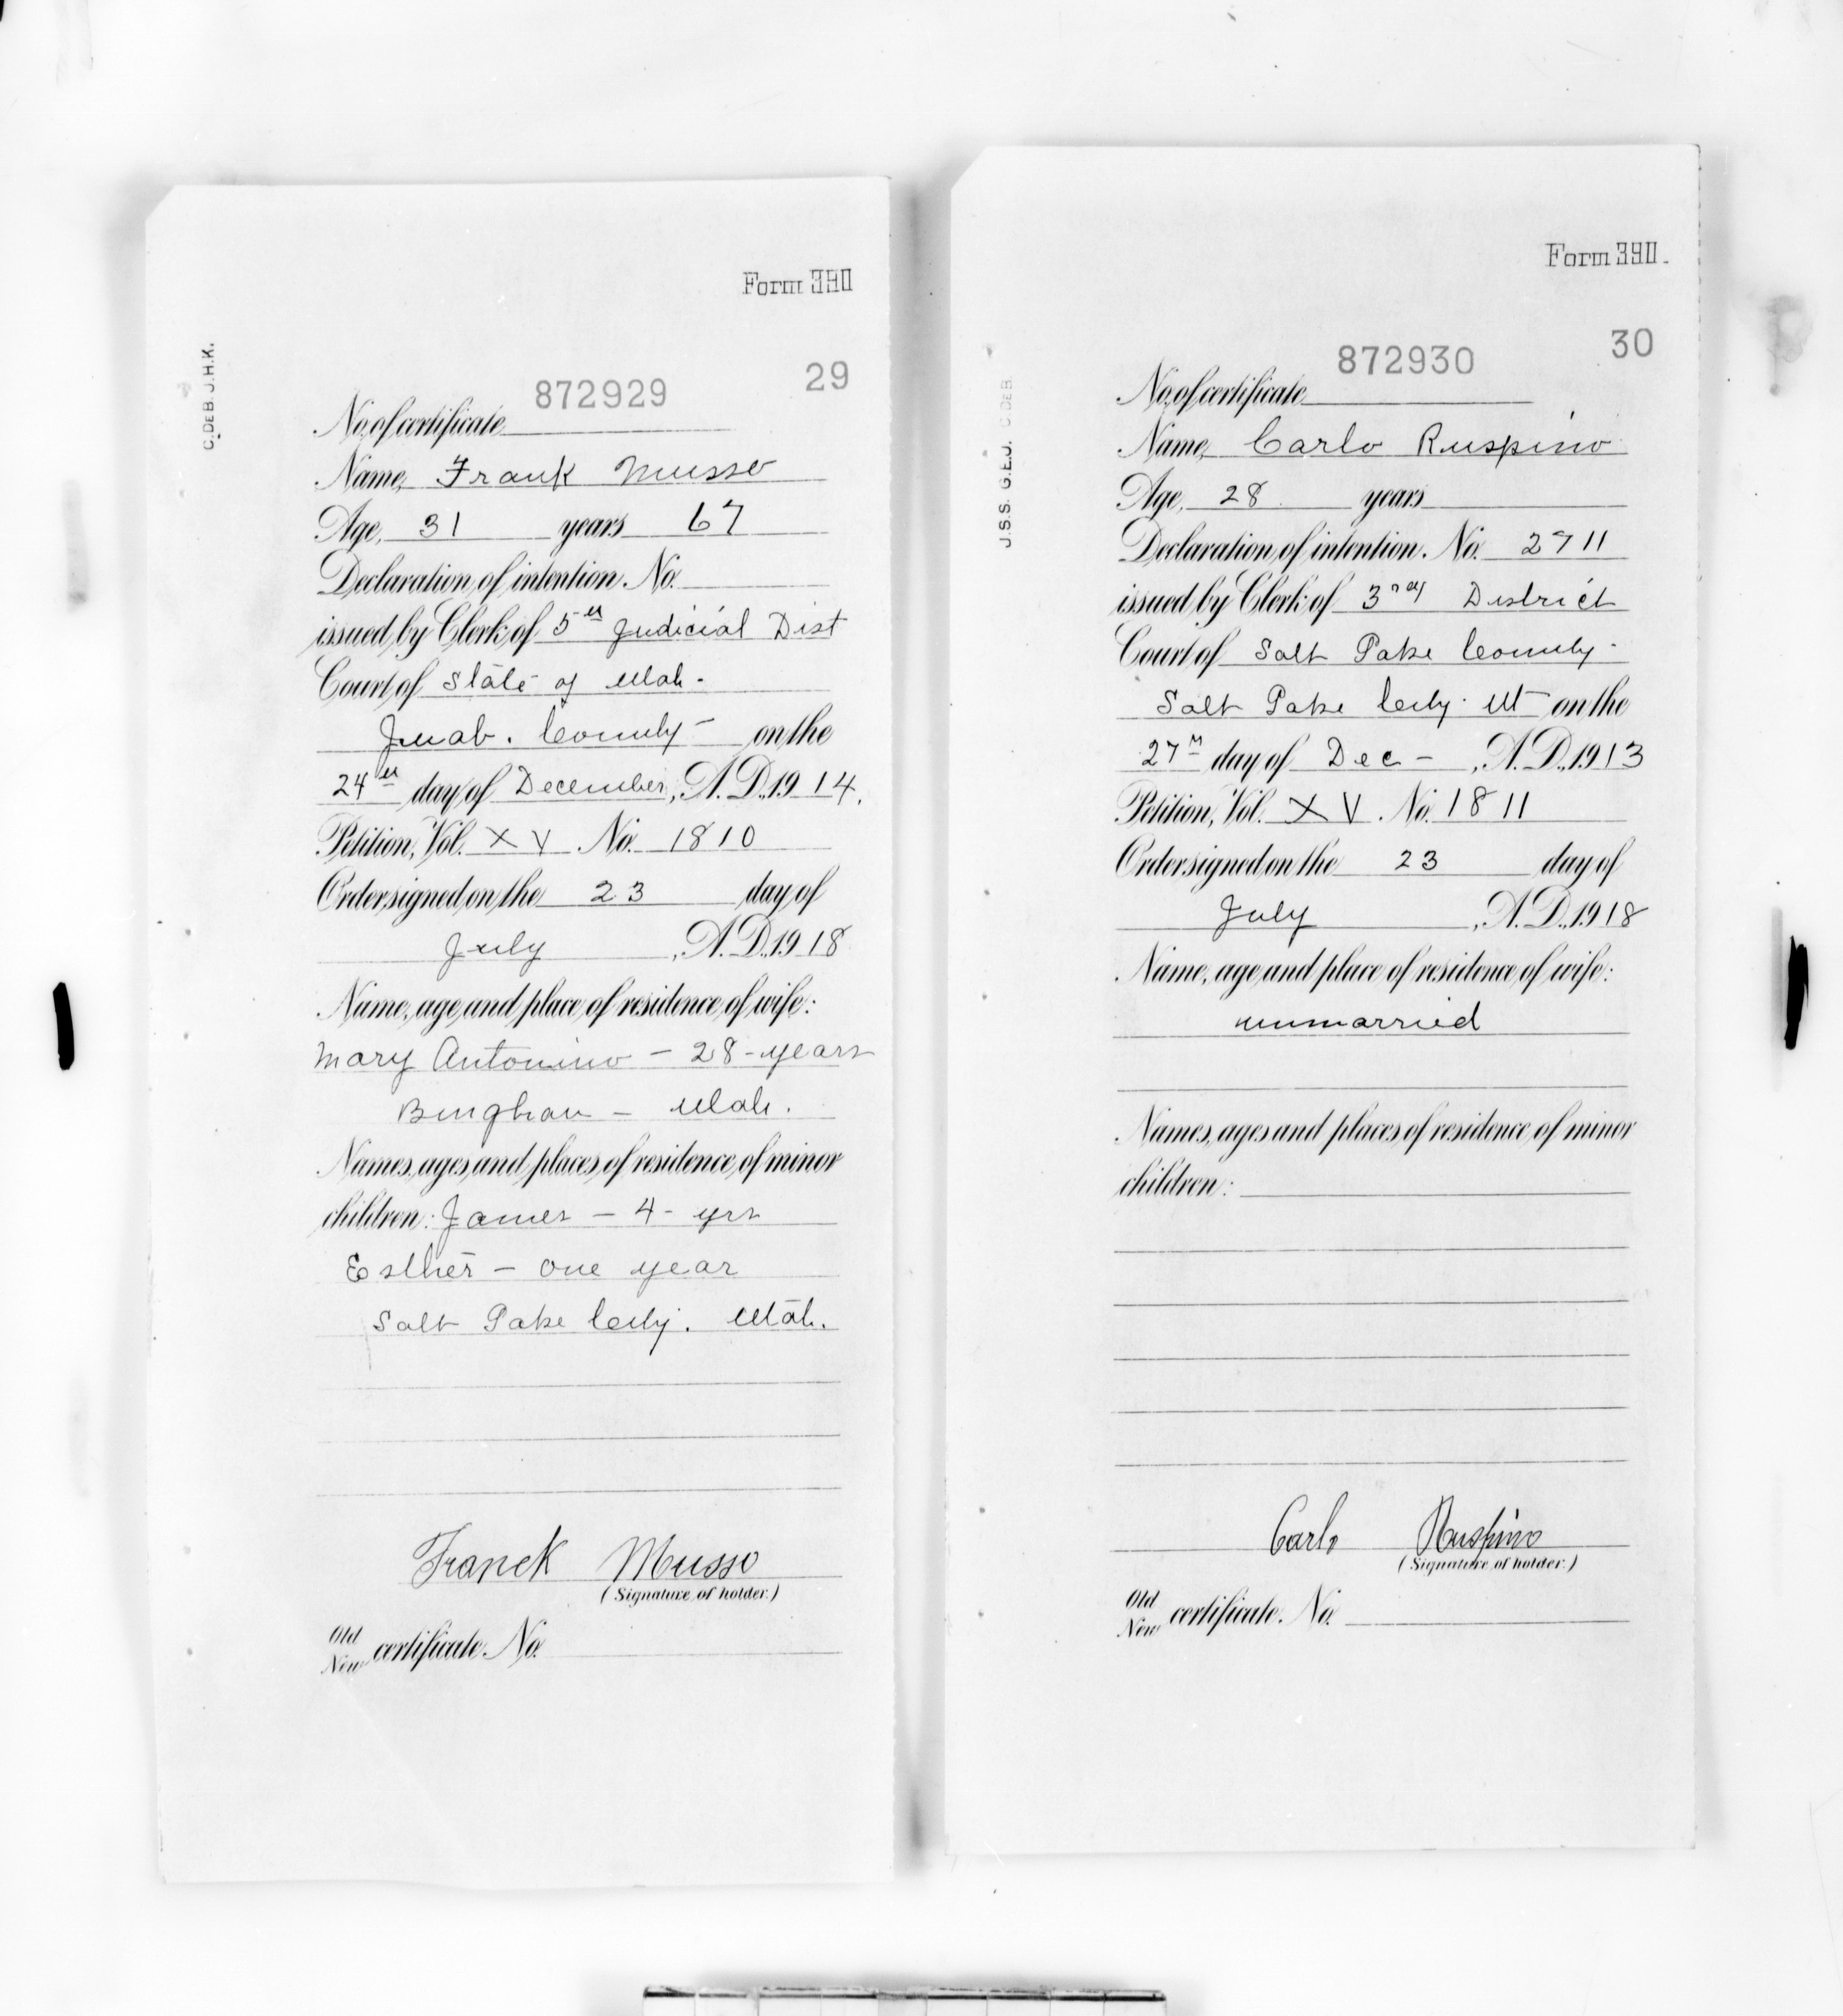 Form 390
C.DEB. J.H.K.
29
872929
No. of certificate
Name, Frank Musso
Age, 31 years 67
Declaration of intention. No.
issued by Clerk of 5th Judicial Dist
Court of State of Utah.
Juab. County - on the
24th day of December, A.D. 1914.
Petition, Vol. XV No. 1810
Order signed on the 23 day of
July, A.D. 1918
Name, age and place of residence of wife:
Mary Antonino - 28 - years
Bingham - Utah.
Names, ages and places of residence of minor
children: James - 4 - yrs
Esther - one year
Salt Lake City. Utah.
Franck Musso
(Signature of holder.)
Old
New certificate. No.
Form 390.
J.S.S. G.E.J. C.DEB.
30
872930
No. of certificate
Name, Carlo Ruspino
Age, 28 years
Declaration of intention. No. 2711
issued by Clerk of 3rd District
Court of Salt Lake County -
Salt Lake City. Ut on the
27th day of Dec -, A.D. 1913
Petition, Vol. XV. No. 1811
Order signed on the 23 day of
July, A.D. 1918
Name, age and place of residence of wife:
unmarried
Names, ages and places of residence of minor
children:
Carlo Ruspino
(Signature of holder.)
Old
New certificate. No.